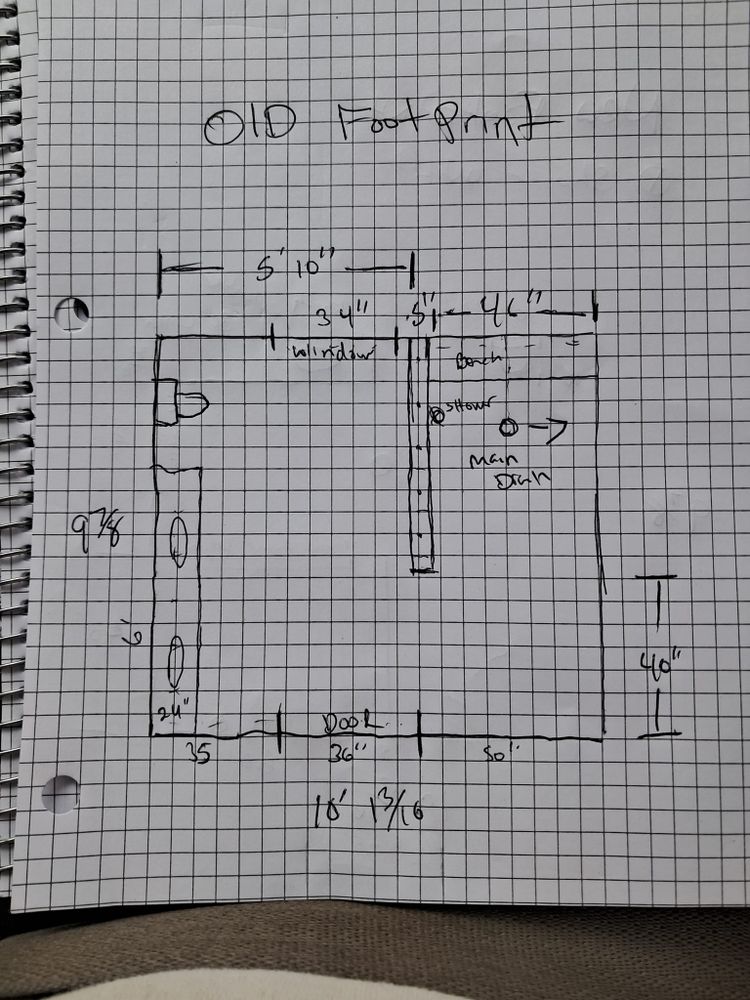 OLD FootPrint
5' 10"
34" 5" 46"
Window Bench
Shower
Main
Drain
9 7/8
6'
40"
24"
Door
35 36" 50"
10' 1 3/16